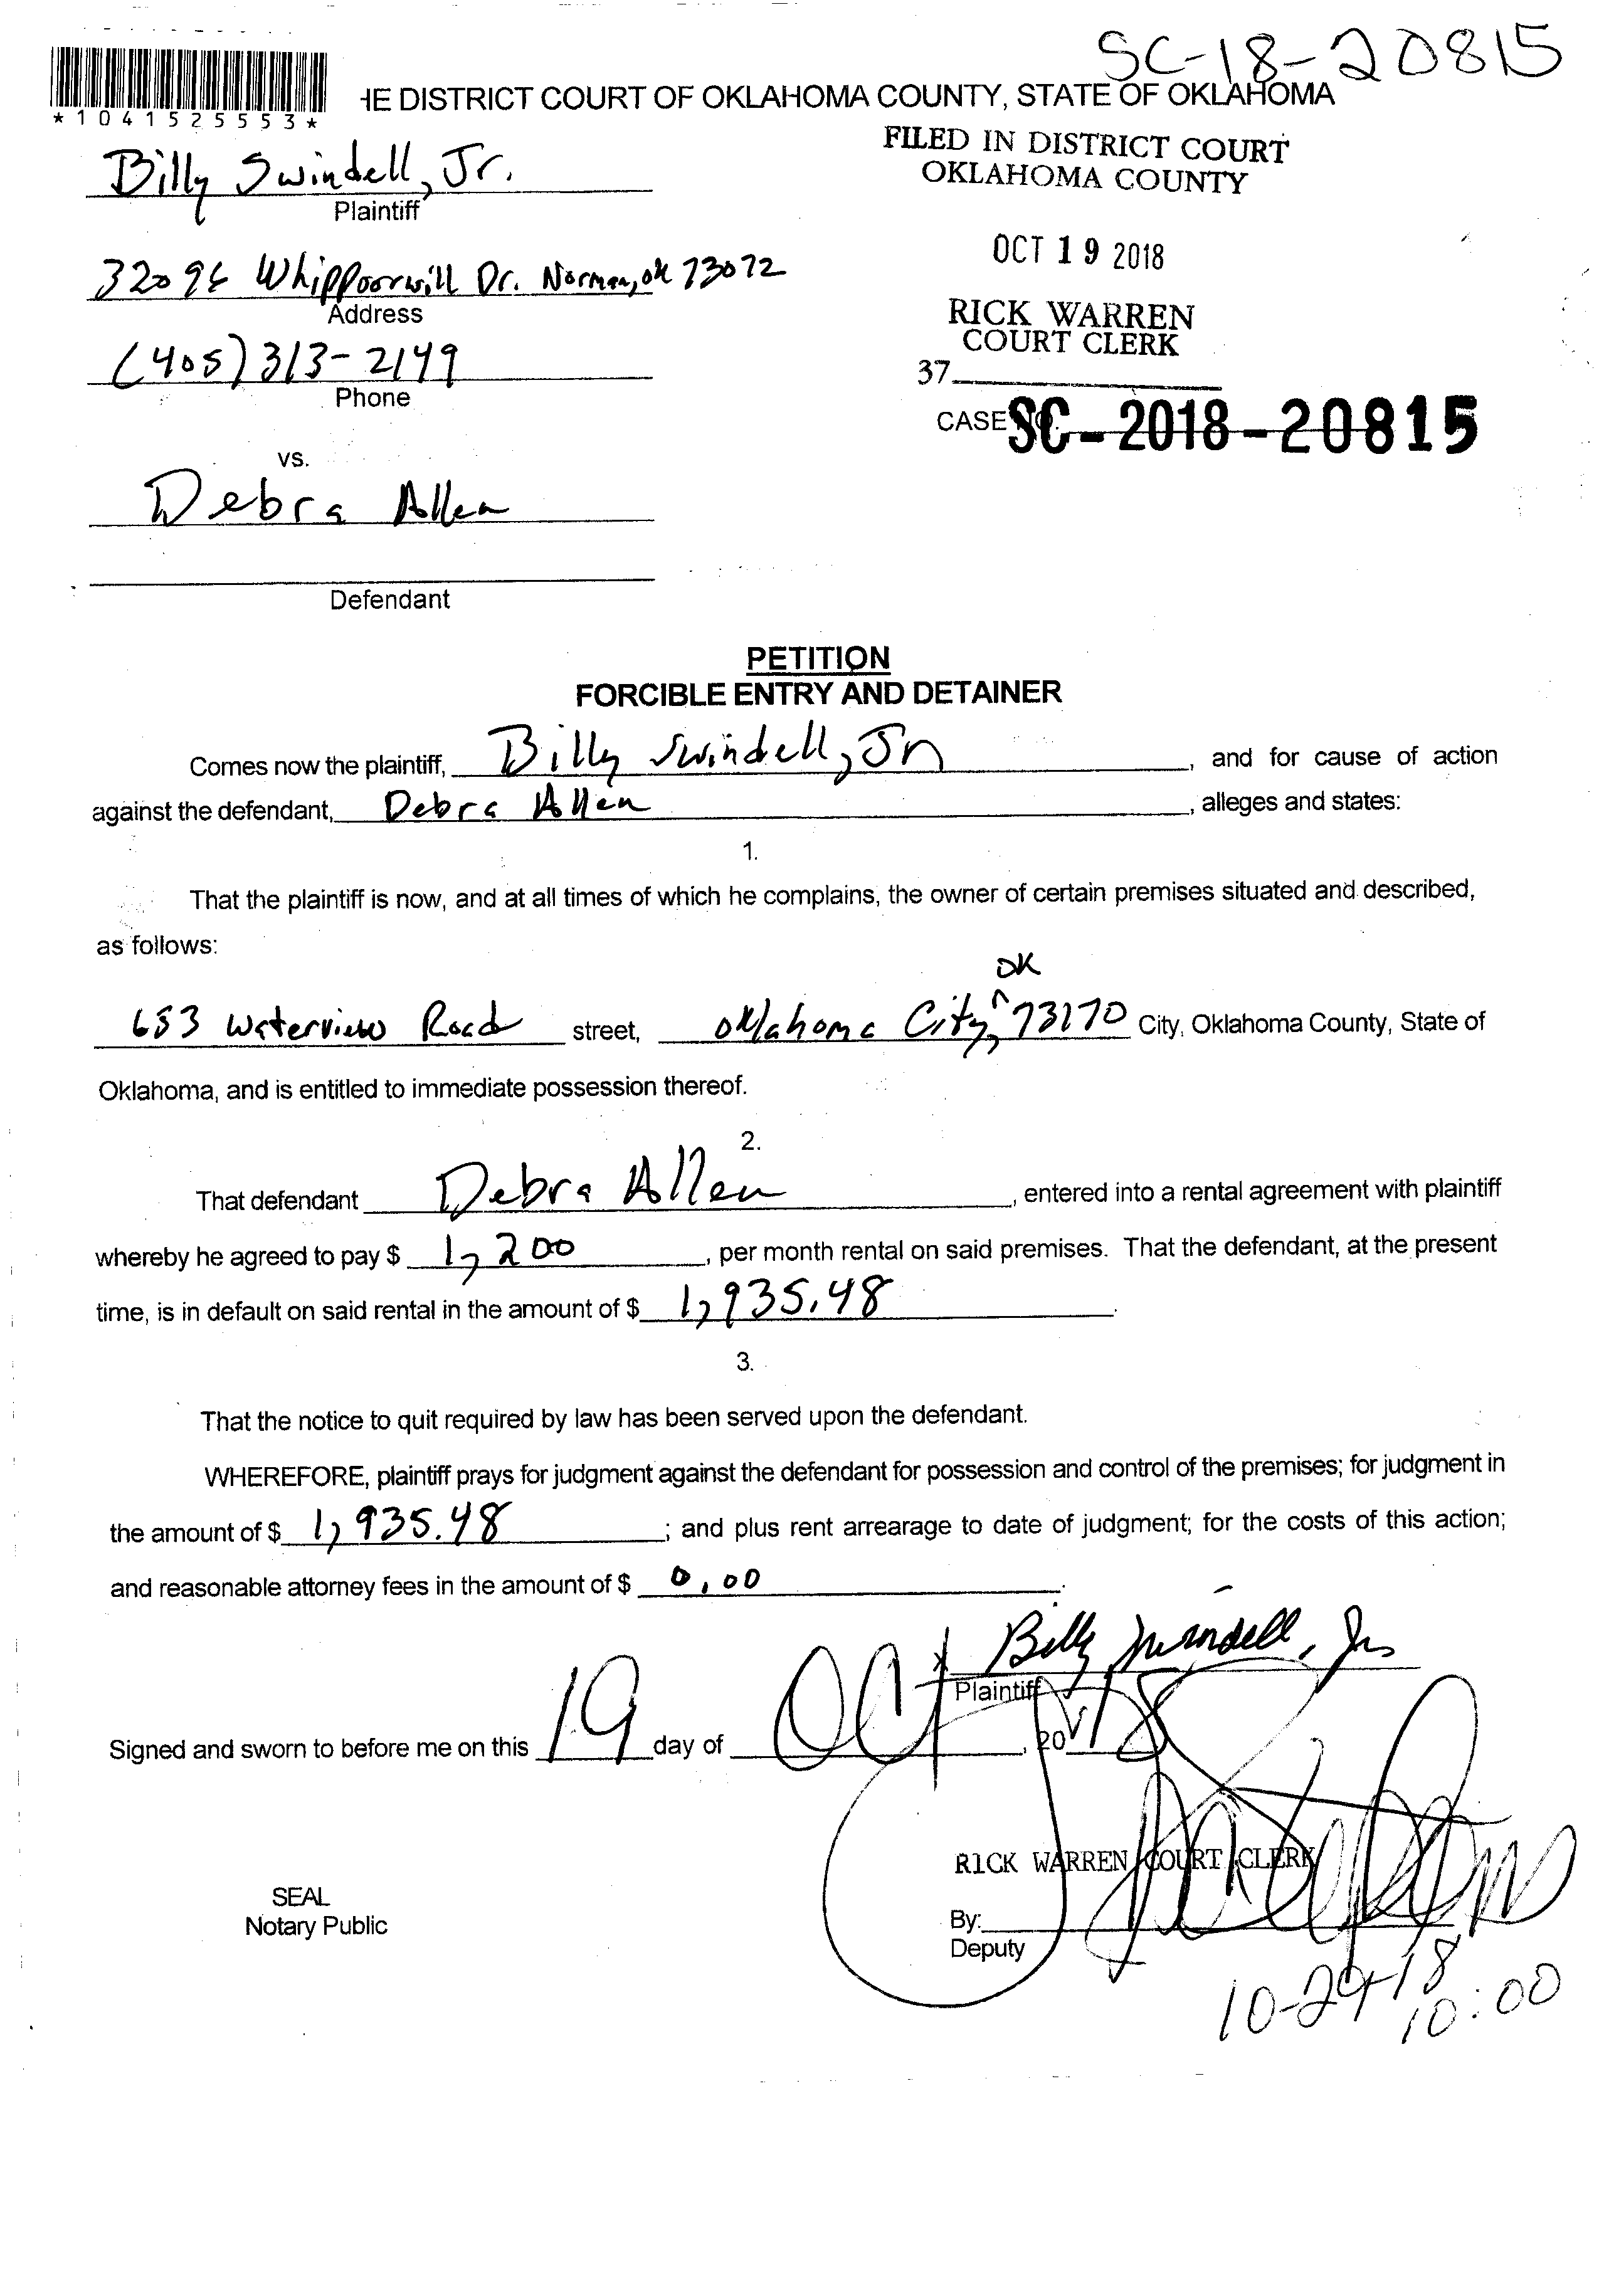 SC-18-20815
*1041525553*
HE DISTRICT COURT OF OKLAHOMA COUNTY, STATE OF OKLAHOMA
FILED IN DISTRICT COURT
OKLAHOMA COUNTY
Billy Swindell, Jr.
Plaintiff
OCT 19 2018
Whippoorwill Dr. Norman, ok 73072
Address
RICK WARREN
COURT CLERK
(405) 313-2149
Phone
37
CASE NO. SC-2018-20815
vs.
Debra Allen
Defendant
PETITION
FORCIBLE ENTRY AND DETAINER
Comes now the plaintiff, Billy Swindell, Jr , and for cause of action
against the defendant, Debra Allen , alleges and states:
1.
That the plaintiff is now, and at all times of which he complains, the owner of certain premises situated and described,
as follows:
OK
653 Waterview Road street, Oklahoma City, ^ 73170 City, Oklahoma County, State of
Oklahoma, and is entitled to immediate possession thereof.
2.
That defendant Debra Allen , entered into a rental agreement with plaintiff
whereby he agreed to pay $ 1,200 , per month rental on said premises. That the defendant, at the present
time, is in default on said rental in the amount of $ 1,935.48 .
3.
That the notice to quit required by law has been served upon the defendant.
WHEREFORE, plaintiff prays for judgment against the defendant for possession and control of the premises; for judgment in
the amount of $ 1,935.48 ; and plus rent arrearage to date of judgment; for the costs of this action;
and reasonable attorney fees in the amount of $ 0.00 .
x Billy Swindell, Jr
Plaintiff
Signed and sworn to before me on this 19 day of Oct , 20 18
RICK WARREN COURT CLERK
SEAL
Notary Public
By:
Deputy
10-29-18
10:00